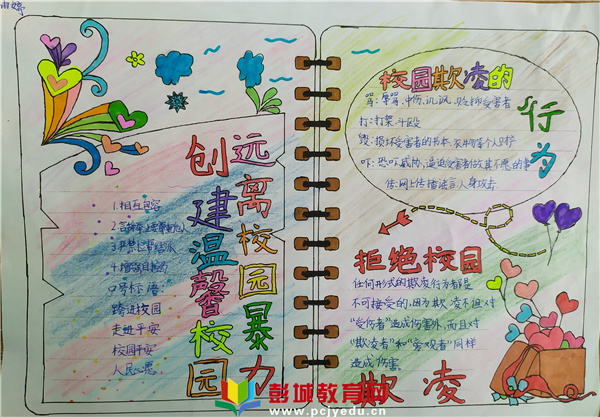 远离校园暴力
创建温馨校园
1.相互包容
口号标语
踏进校园
走进平安
校园平安
人民心愿
校园欺凌的
行为
骂:辱骂、中伤、讥讽、贬抑受害者
打:打架、斗殴
毁:损坏受害者的书本、衣物等个人财产
吓:恐吓、威胁、逼迫受害者做其不愿的事
传:网上传播谣言人身攻击
拒绝校园
任何形式的欺凌行为都是
不可接受的,因为欺凌不但对
“受伤者”造成伤害外,而且对
“欺凌者”和“旁观者”同样
造成伤害.
欺凌
彭城教育网
www.pcjyedu.cn